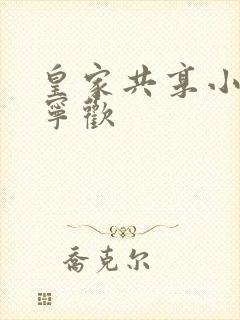 皇家共享小
寧歡
喬克尔